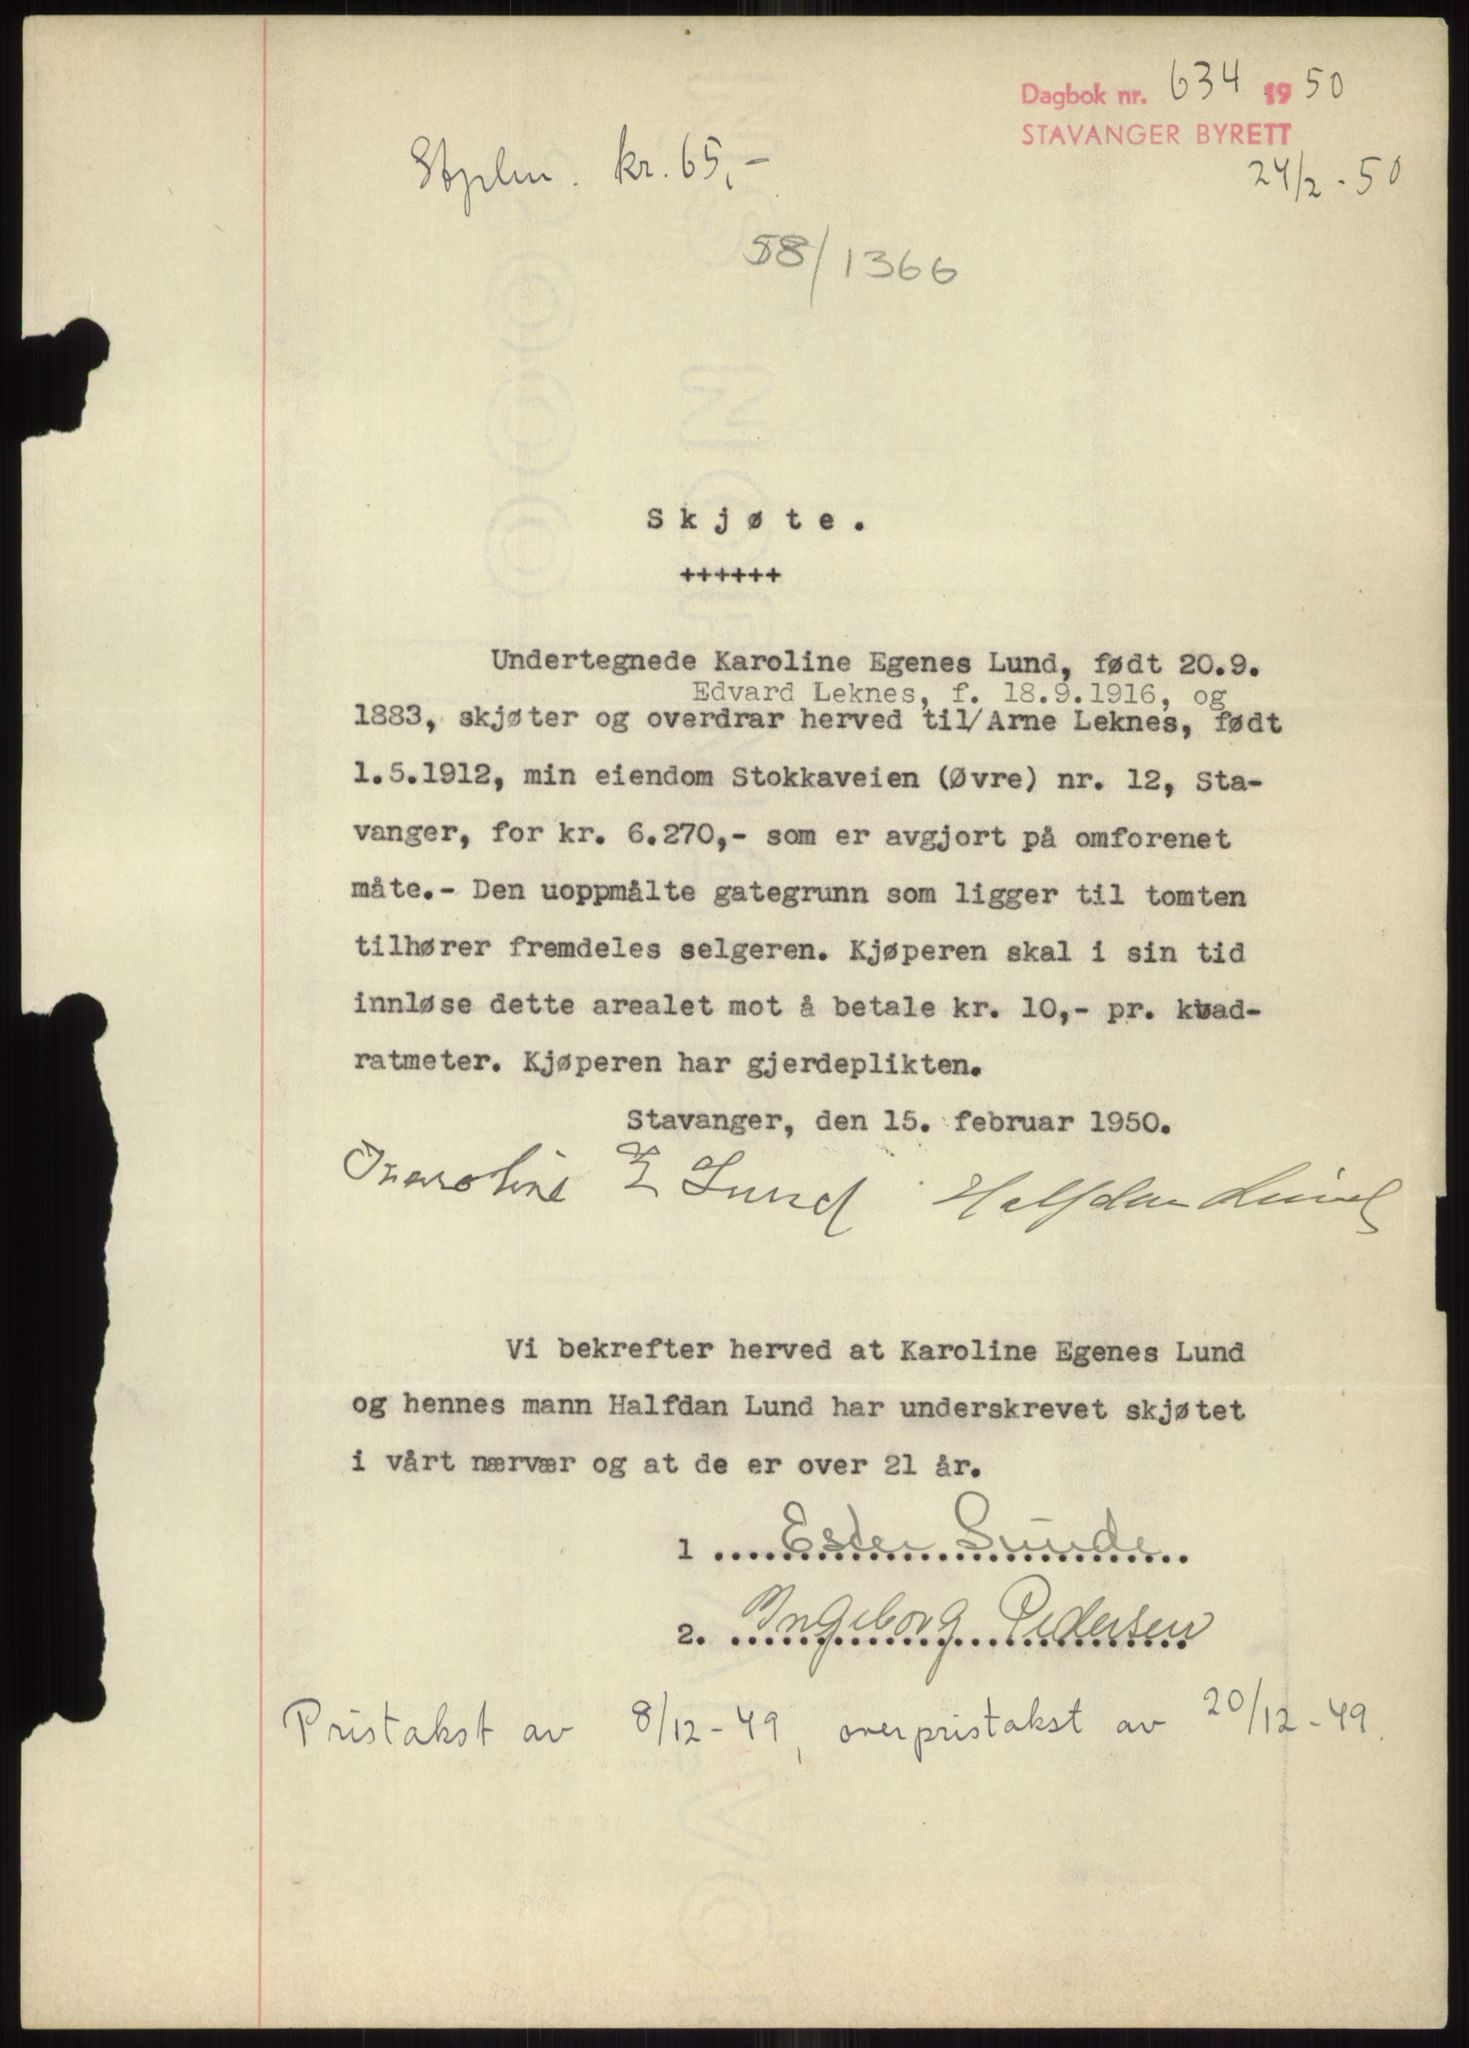 Dagbok nr. 634 1950
STAVANGER BYRETT
24/2 - 50
kr. 65,-
58/1366
Skjøte.
++++++
Undertegnede Karoline Egenes Lund, født 20.9.
Edvard Leknes, f. 18.9.1916, og
1883, skjøter og overdrar herved til/Arne Leknes, født
1.5.1912, min eiendom Stokkaveien (Øvre) nr. 12, Sta-
vanger, for kr. 6.270,- som er avgjort på omforenet
måte.- Den uoppmålte gategrunn som ligger til tomten
tilhører fremdeles selgeren. Kjøperen skal i sin tid
innløse dette arealet mot å betale kr. 10,- pr. kvad-
ratmeter. Kjøperen har gjerdeplikten.
Stavanger, den 15. februar 1950.
Karoline E Lund Halfdan Lund
Vi bekrefter herved at Karoline Egenes Lund
og hennes mann Halfdan Lund har underskrevet skjøtet
i vårt nærvær og at de er over 21 år.
1 Ester Sunde
2. Ingeborg Pedersen
Pristakst av 8/12-49, overpristakst av 20/12-49.